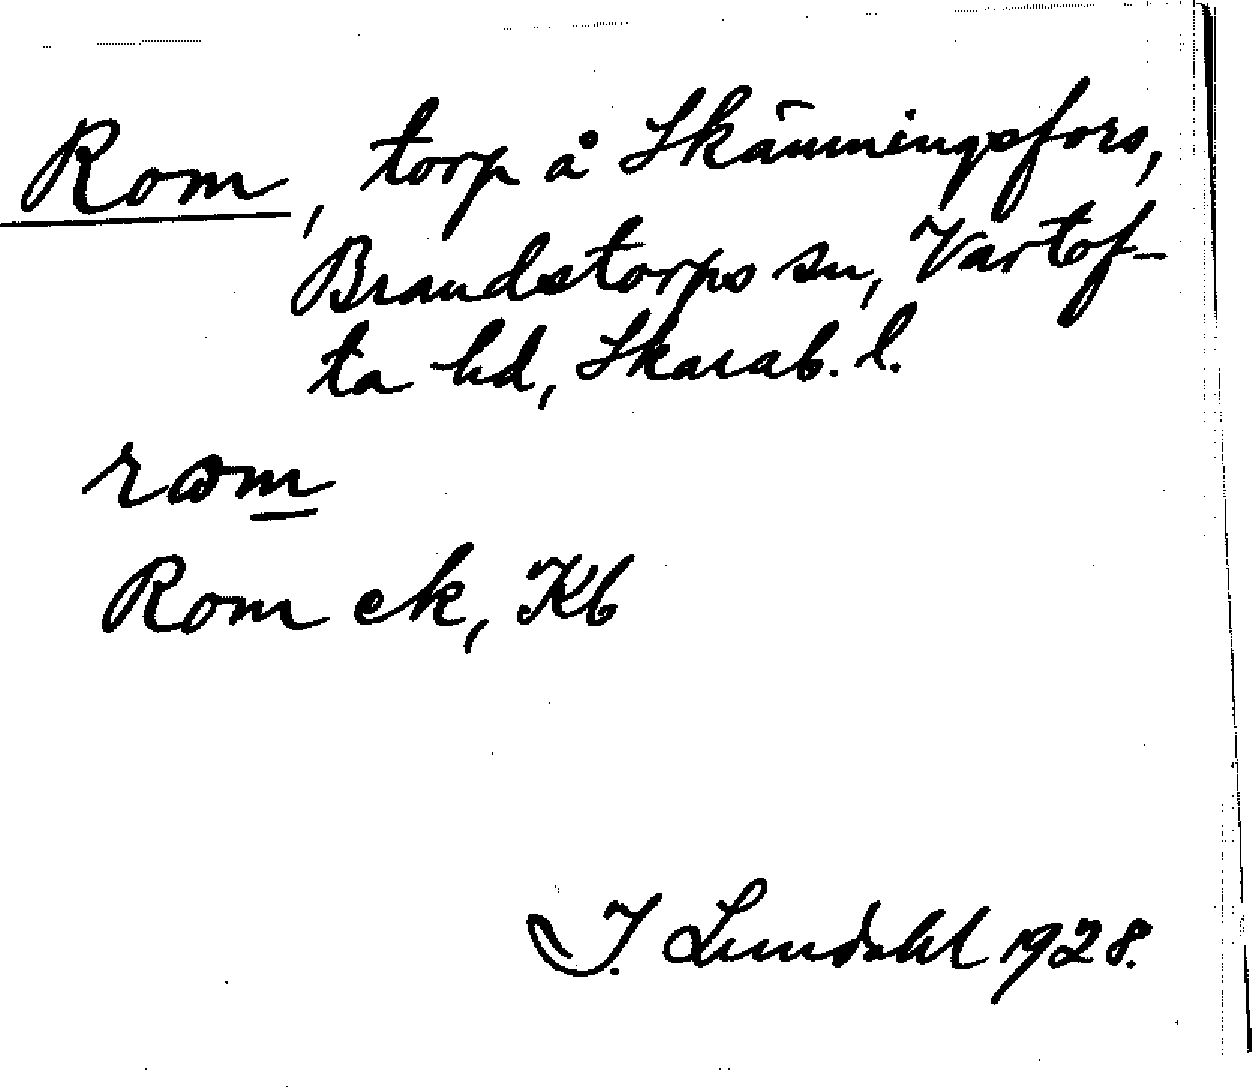 Rom, torp å Skämningsfors,
Brandstorps sn, Vartof-
ta hd, Skarab. l.
Rom ek, Kb
I. Lundahl 1928.